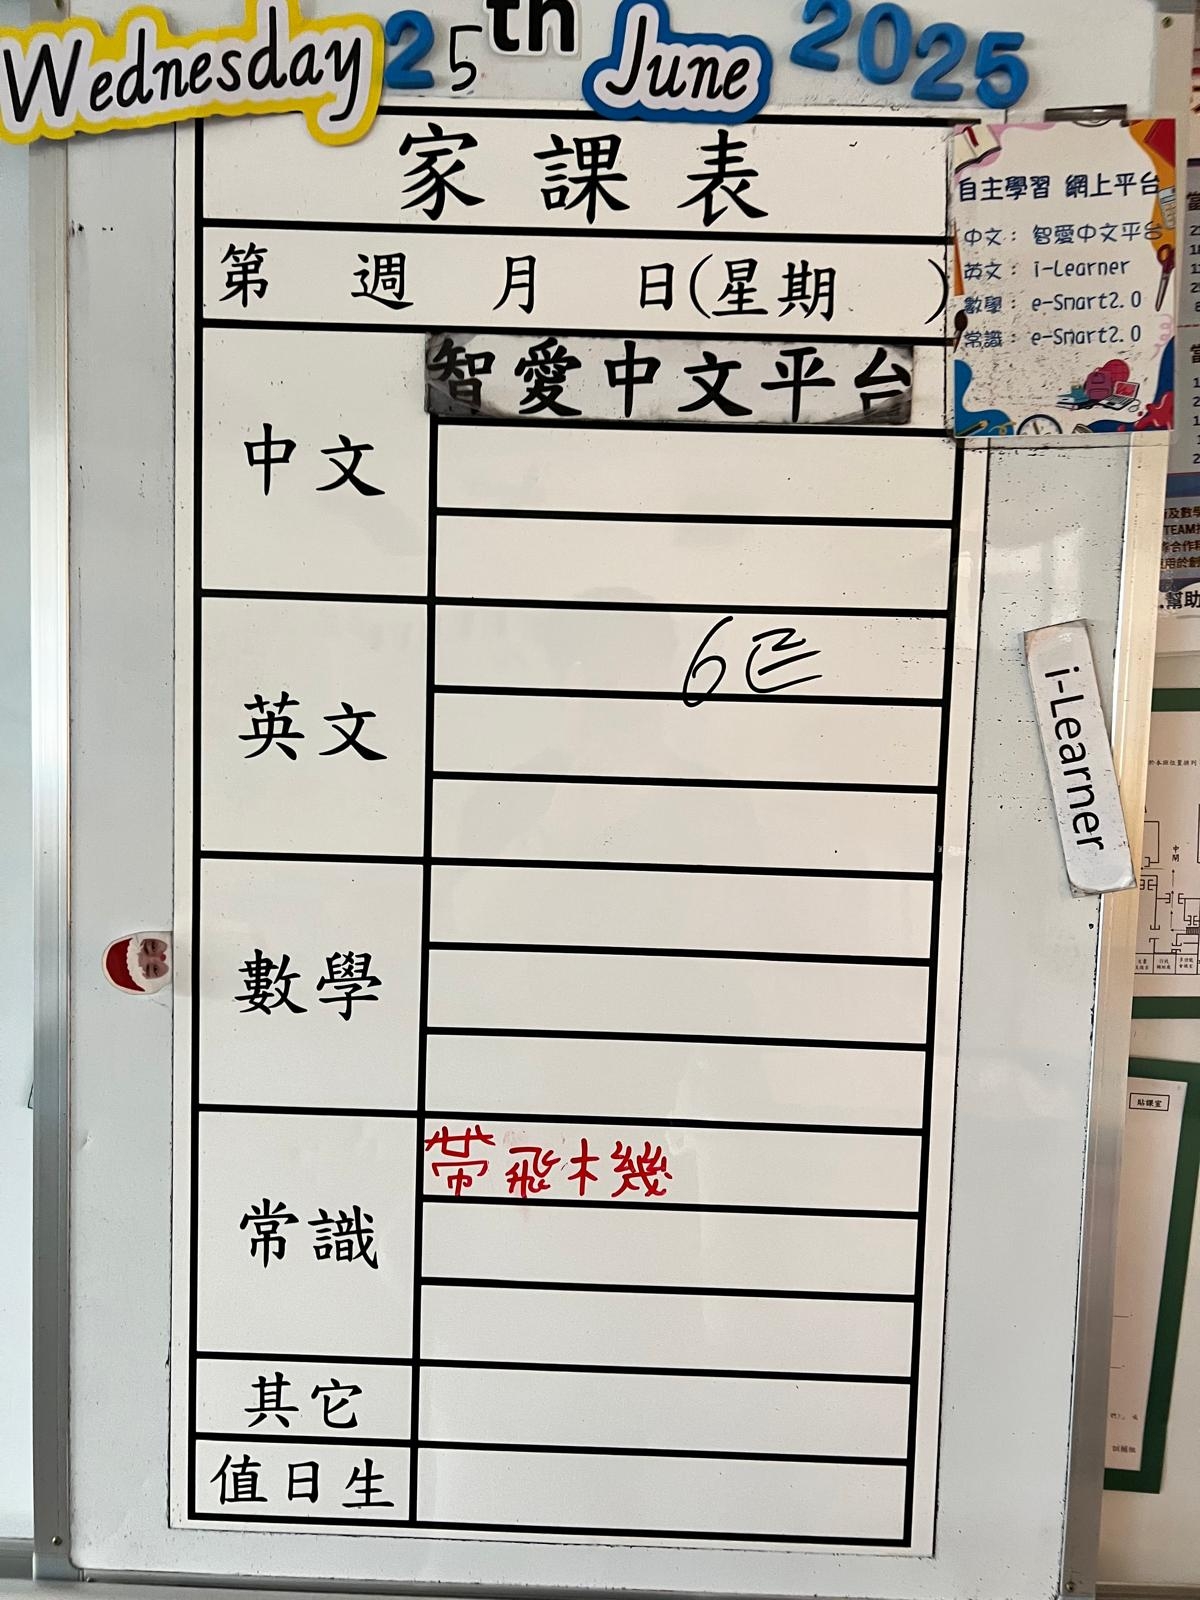 Wednesday 25th June 2025
家課表
第 週 月 日(星期 )
自主學習 網上平台
中文: 智愛中文平台
英文: i-Learner
數學: e-Smart2.0
常識: e-Smart2.0
中文
智愛中文平台
英文
i-Learner
數學
常識
帶飛木幾
其它
值日生
貼課室
幫助